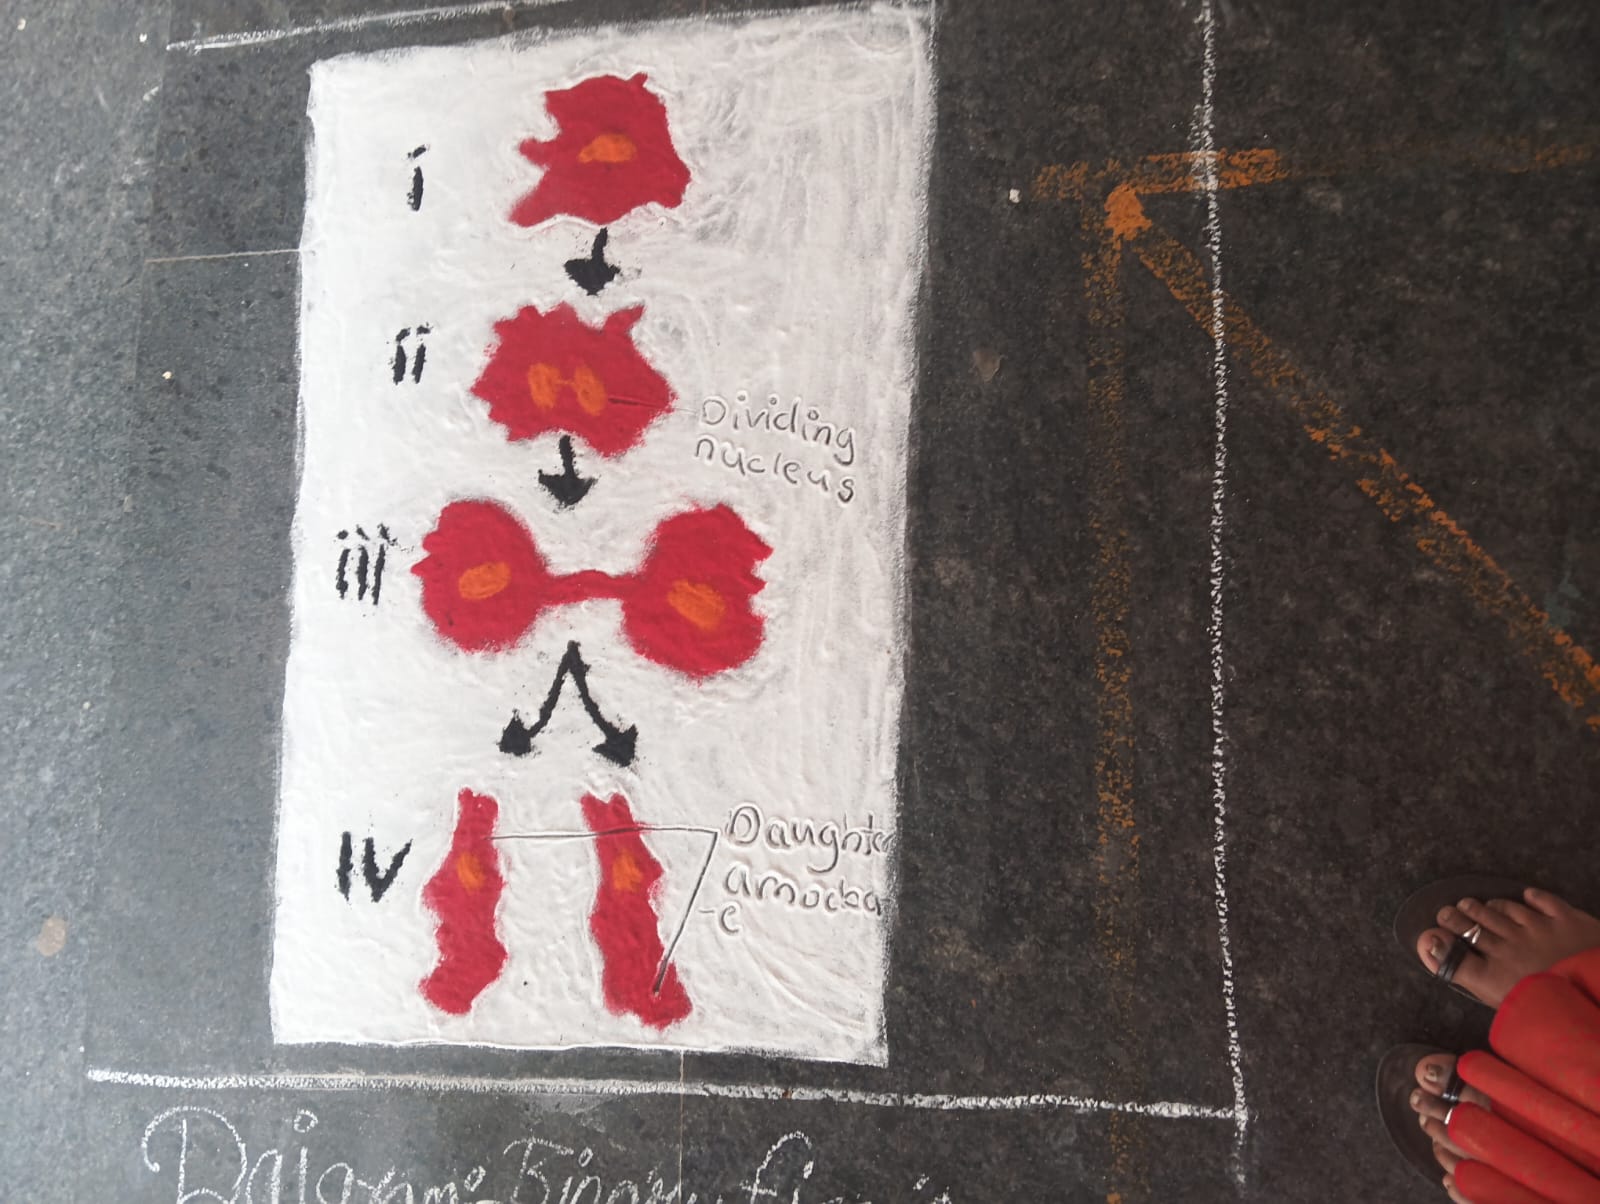 i
ii
Dividing
nucleus
iii
iv
Daughter
amoeba
-e
Daigram:- Binary fissio